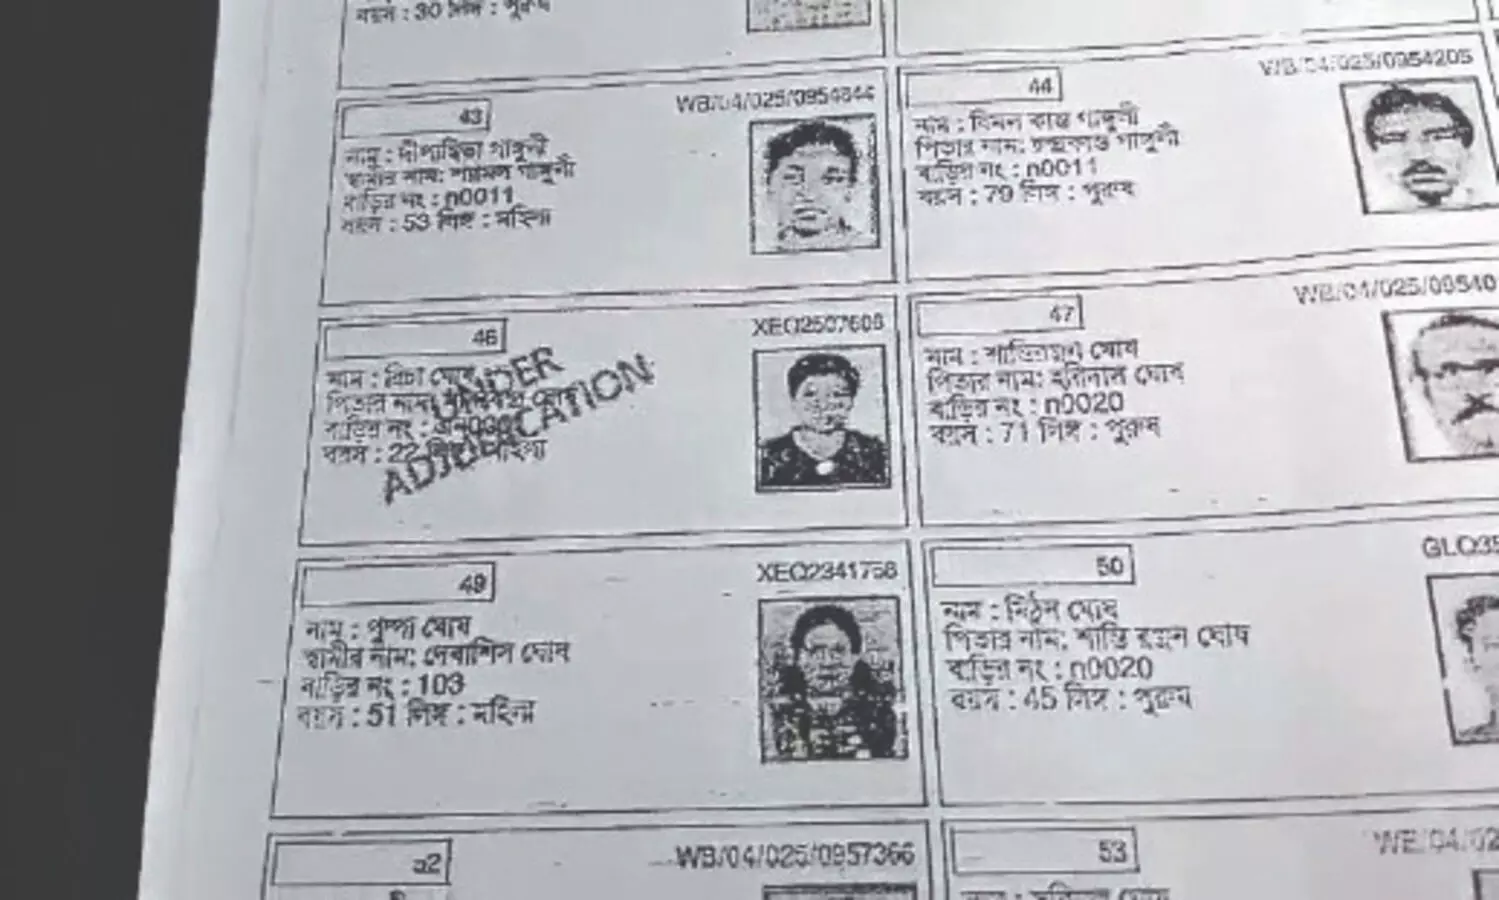 বয়স : 30 লিঙ্গ : পুরুষ
43
WB/04/025/0954844
নাম : দীপান্বিতা গাঙ্গুলী
স্বামীর নাম: শ্যামল গাঙ্গুলী
বাড়ির নং : n0011
বয়স : 53 লিঙ্গ : মহিলা
44
WB/04/025/0954205
নাম : বিমল কান্ত গাঙ্গুলী
পিতার নাম: গাঙ্গুলী
বাড়ির নং : n0011
বয়স : 79 লিঙ্গ : পুরুষ
46
XEQ2507608
নাম : রিচা ঘোষ
পিতার নাম: ঘোষ
বাড়ির নং :
বয়স : 22 লিঙ্গ : মহিলা
UNDER
ADJUDICATION
47
WB/04/025/09540
নাম : শান্তিরঞ্জন ঘোষ
পিতার নাম: হরিদাস ঘোষ
বাড়ির নং : n0020
বয়স : 71 লিঙ্গ : পুরুষ
49
XEQ2341758
নাম : পুষ্পা ঘোষ
স্বামীর নাম: দেবাশিস ঘোষ
বাড়ির নং : 103
বয়স : 51 লিঙ্গ : মহিলা
50
GLQ35
নাম : মিঠুন ঘোষ
পিতার নাম: শান্তি রঞ্জন ঘোষ
বাড়ির নং : n0020
বয়স : 45 লিঙ্গ : পুরুষ
52
WB/04/025/0957366
53
WB/04/02